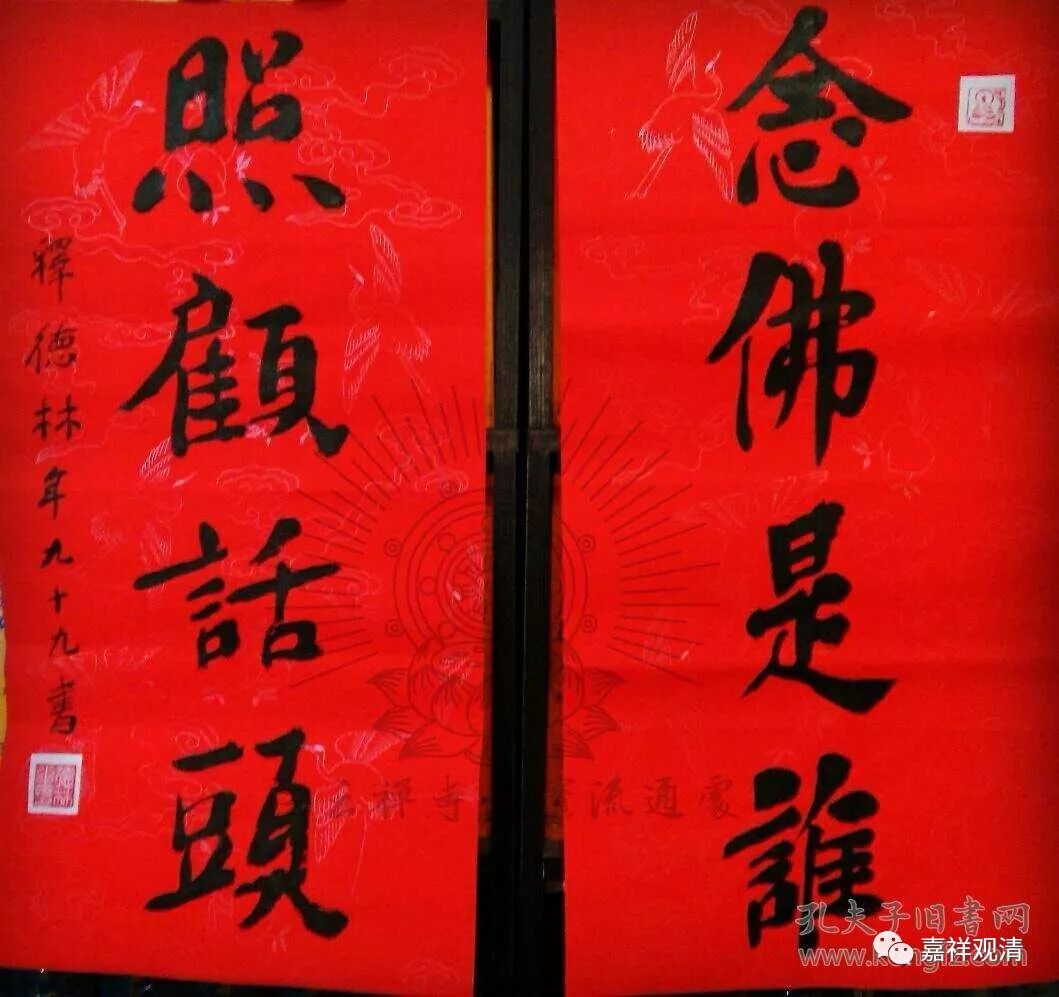 念佛是誰
照顧話頭
釋德林年九十九書
禅寺
流通處
孔夫子旧书网
嘉祥观清